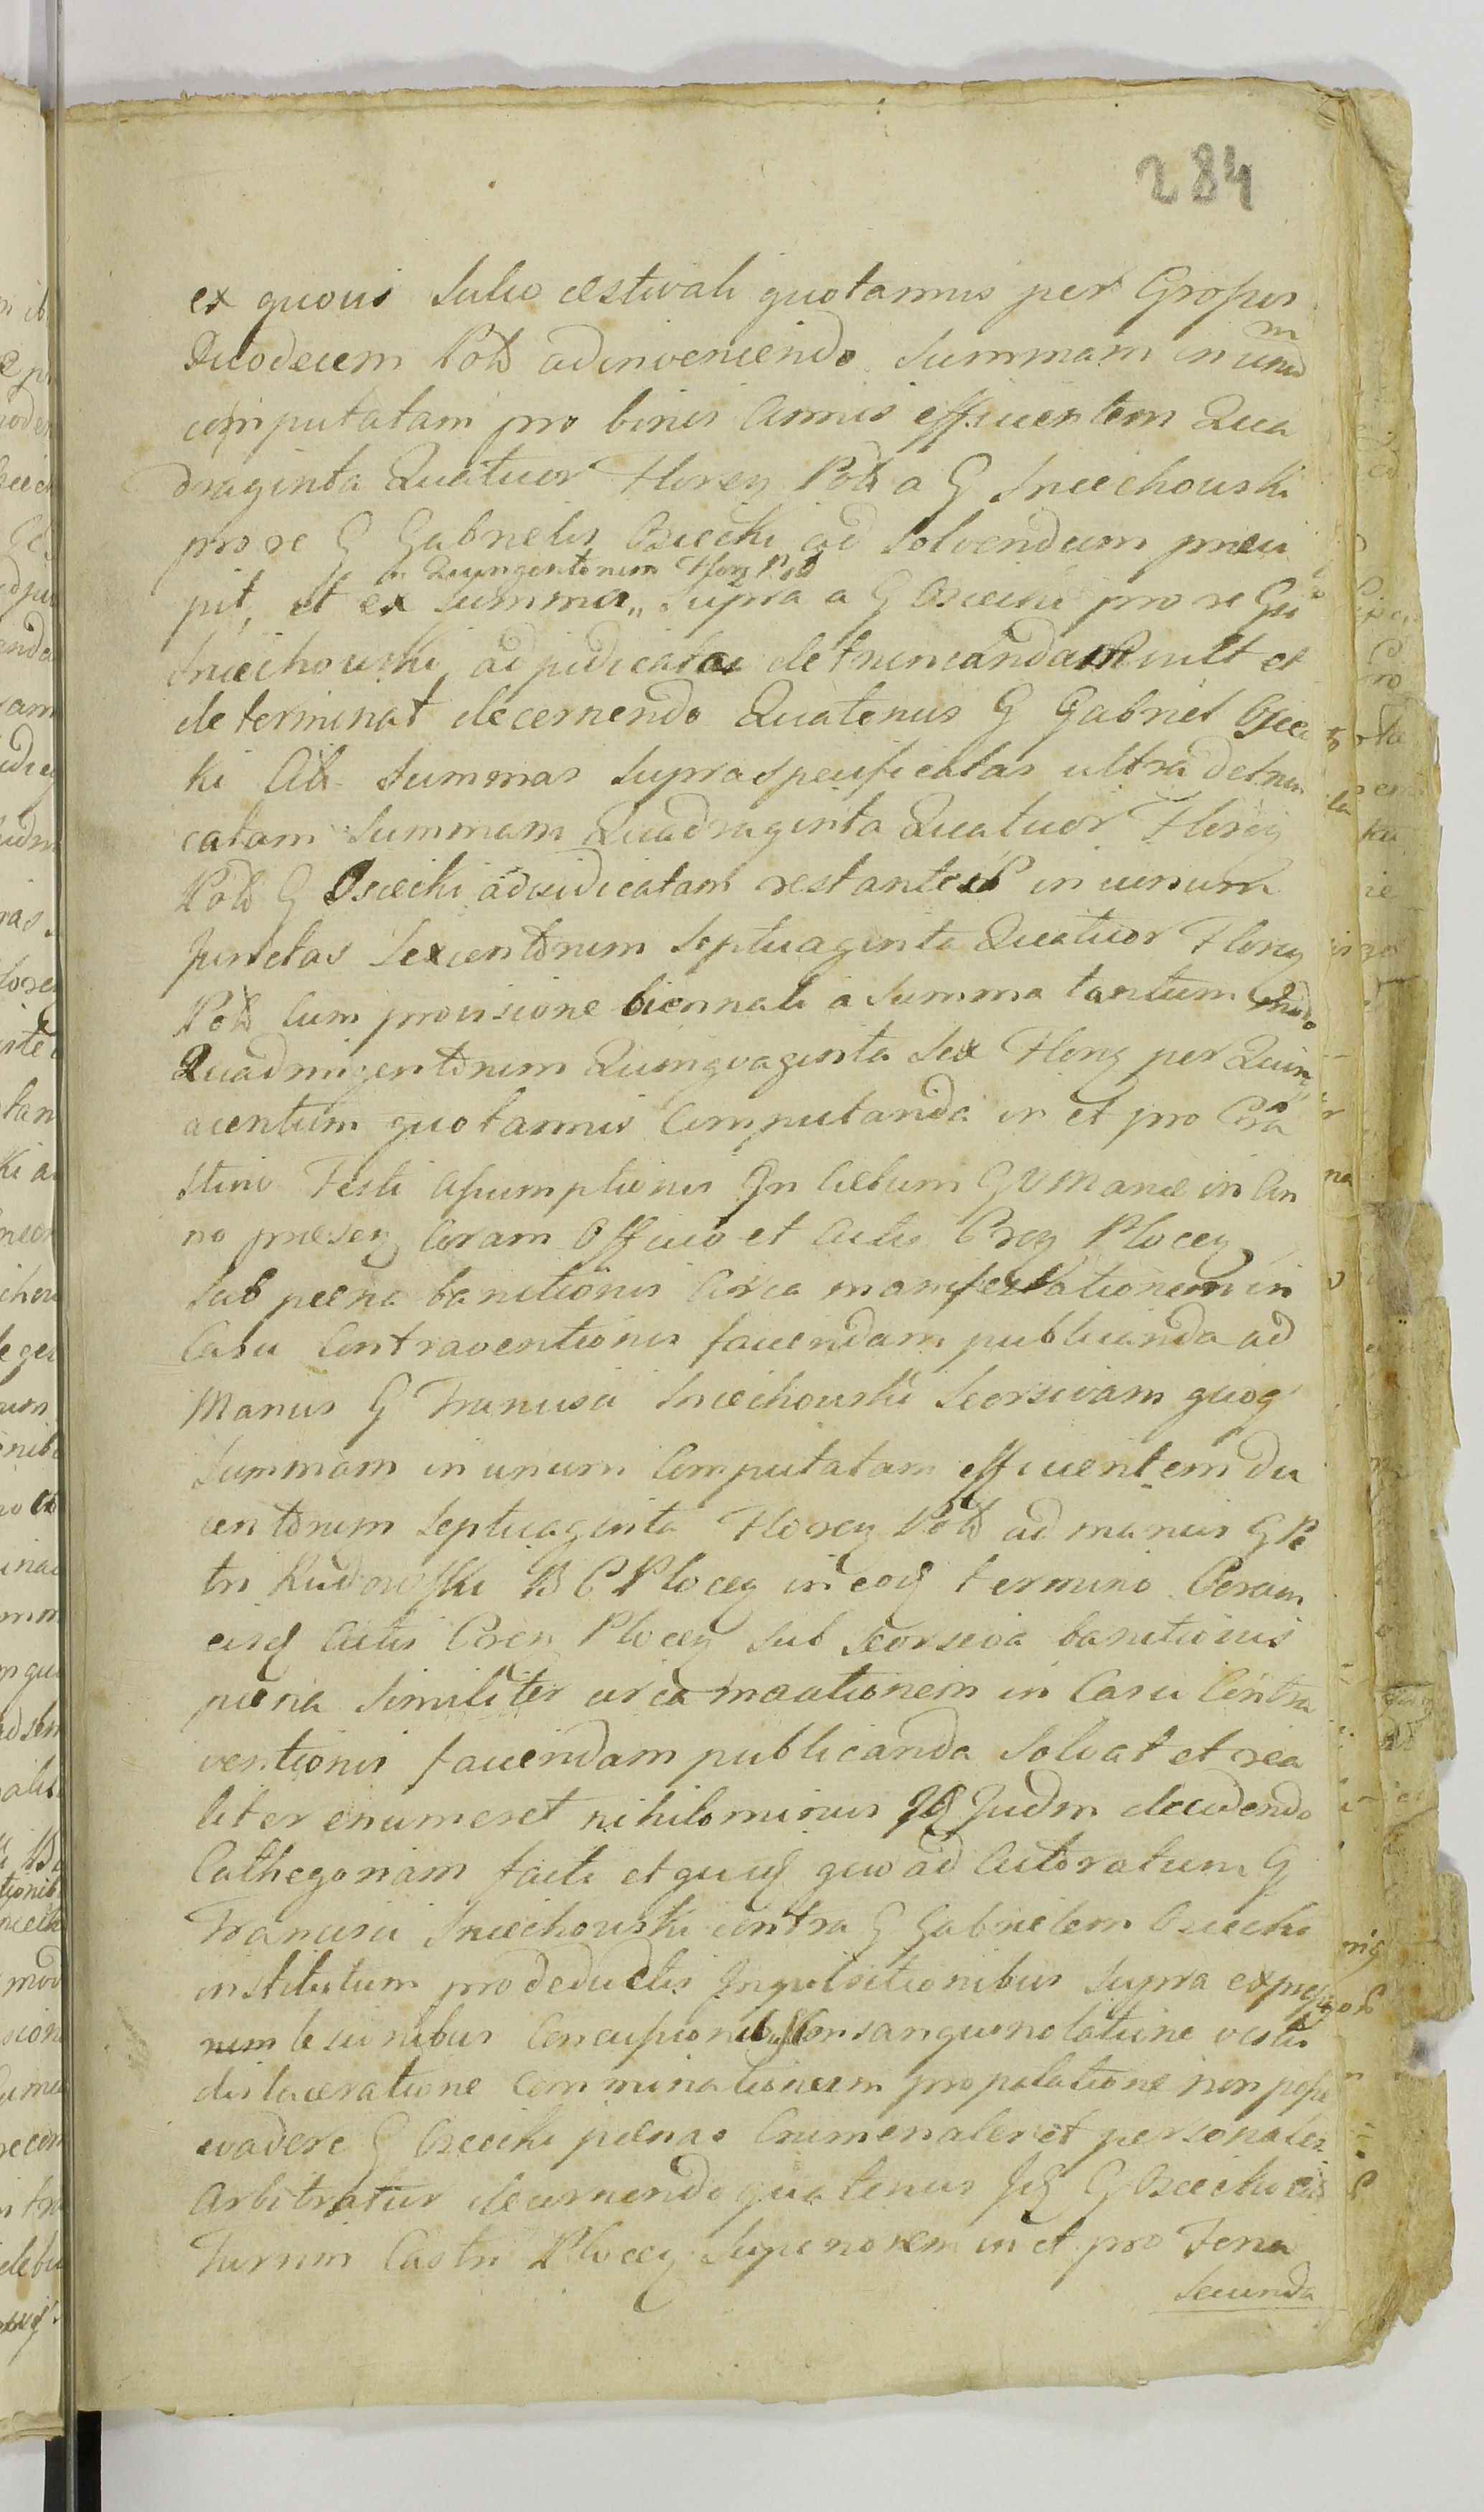 284
ex quovis Sulco æstivali quotannis per Grossos
Duodecem Pols adinveniendo Summam in unum
computatam pro binis Annis efficientem Qua
draginta Quatuor Floren Pols a G Sniechowski
pro re G Gabrielis Osiecki ad Solvendum præci
pit, et ex Summa „ Supra a G Osiecki pro re Gsi
„ Quingentorum Floren Pols
Sniechowski adjudicata detruncandam vult et
determinat decernendo Quatenus G Gabriel Osiec
ki Ad Summas supra specificatas ultra detrun
catam Summam Quadraginta Quatuor Floren
Pols G Osiecki adjudicatam restantes in unum
junctas Sexcentorum Septuaginta Quatuor Floren
Pols Cum provisione biennali a Summa tantum modo
Quadringentorum Quinquaginta Sex Floren per Quin
a centum quotannis Computanda in et pro Cra
stino Festi Assumptionis In Cælum GV Mariæ in An
no præsen Coram Officio et Actis Cren Plocen
Sub pæna banitionis Circa manifestationem in
Casu Contraventionis faciendam publicanda ad
Manus G Francisci Sniechowski Seorsivam quoq
Summam in unum Computatam efficientem Du
centorum Septuaginta Floren Pols ad manus G Pe
tri Rudowski B C Plocen in eoq termino Coram
eisq Actis Cren Plocen Sub Seorsiva banitionis
pæna Similiter circa maationem in Casu Contra
ventionis faciendam publicanda Solvat et rea
liter enumeret nihilominus Judm decidendo
Cathegoriam facti et quod ad Actoratum G
Francisci Sniechowski contra G Gabrielem Osiecki
institutum pro deductis Inquisitionibus Supra
Consanguinolatione vestis
dislaceratione Comminationem propalatione non posse
evadere G Osiecki pænas Criminales et personales
Arbitratur decernendo quatenus G Osiecki
Turrim Castri Plocen Superiorem in et pro Feria
Secunda